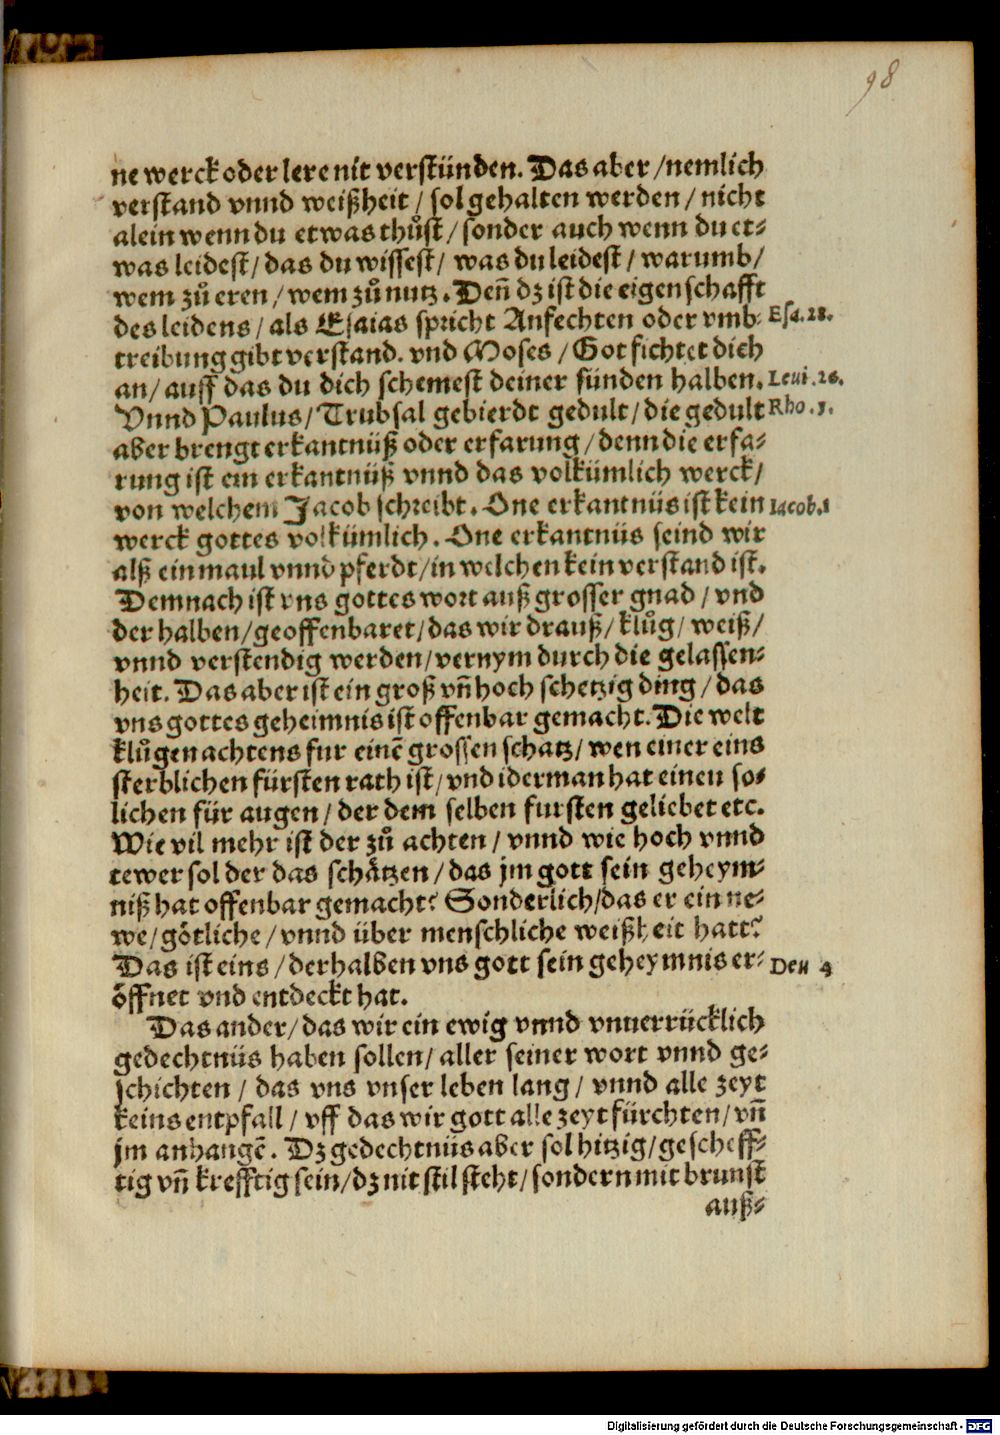 98
ne werck oder lere nit verstünden. Das aber / nemlich
verstand vnnd weißheit / sol gehalten werden / nicht
alein wenn du etwas thůst / sonder auch wenn du et⸗
was leidest / das du wissest / was du leidest / warumb /
wem zů eren / wem zů nutz. Deñ dz ist die eigenschafft
des leidens / als Esaias spricht Anfechten oder vmb⸗ Esa.28.
treibung gibt verstand. vnd Moses / Got fichtet dich
an / auff das du dich schemest deiner sünden halben. Leui.26.
Vnnd Paulus / Trubsal gebierdt gedult / die gedult Rho.5.
aber brengt erkantnüß oder erfarung / denn die erfa⸗
rung ist ein erkantnüß vnnd das volkümlich werck /
von welchem Jacob schreibt. One erkantnüs ist kein Iacob.1
werck gottes volkümlich. One erkantnüs seind wir
alß ein maul vnnd pferdt / in welchen kein verstand ist.
Demnach ist vns gottes wort auß grosser gnad / vnd
der halben / geoffenbaret / das wir drauß / klůg / weiß /
vnnd verstendig werden / vernym durch die gelassen⸗
heit. Das aber ist ein groß vñ hoch schetzig ding / das
vns gottes geheimnis ist offenbar gemacht. Die welt
klůgen achtens fur einē grossen schatz / wen einer eins
sterblichen fürsten rath ist / vnd iderman hat einen so⸗
lichen für augen / der dem selben fursten geliebet etc.
Wie vil mehr ist der zů achten / vnnd wie hoch vnnd
tewer sol der das schåtzen / das jm gott sein geheym⸗
niß hat offenbar gemacht? Sonderlich / das er ein ne⸗
we / götliche / vnnd über menschliche weißheit hatt?
Das ist eins / derhalben vns gott sein geheymnis er⸗ Deu 4
öffnet vnd entdeckt hat.
Das ander / das wir ein ewig vnnd vnuerrücklich
gedechtnüs haben sollen / aller seiner wort vnnd ge⸗
schichten / das vns vnser leben lang / vnnd alle zeyt
keins entpfall / vff das wir gott alle zeyt fürchten / vñ
jm anhangē. Dz gedechtnüs aber sol hitzig / gescheff⸗
tig vñ krefftig sein / dz nit stil steht / sondern mit brunst
auß⸗
Digitalisierung gefördert durch die Deutsche Forschungsgemeinschaft - DFG